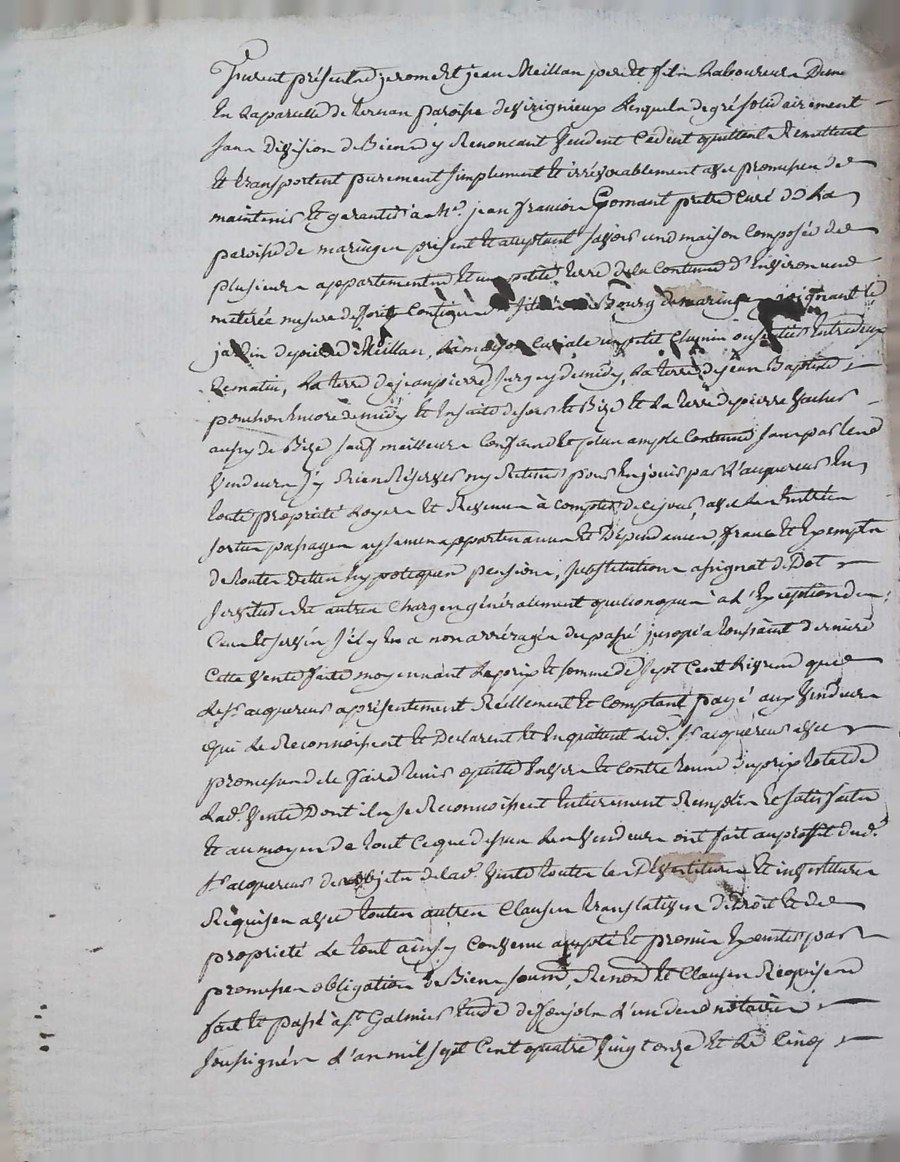 Furent présents jerome et jean Meillan pere et fils Laboureurs Dem.
En La parcelle de Ternan paroisse de Virignieux Lesquels de gré solidairement
sans Division de Biens y Renoncant Vendent Cedent quittent Remettent
Et transportent purement simplement et irrévocablement avec promesse de
maintenir et garantir à Mre. jean francois Gomant pretre Curé de La
paroisse de maringes présent et acceptant savoir une maison Composée de
plusieurs appartements et une petite terre de la Contenue d'Environ une
meterée mesure de foretz Contigue situé au Bourg de maringes joignant le
jardin de pierre Meillan, La maison Curiale un petit Chemin ou sentier Entredeux
de matin, La terre de jean pierre de midy, La terre de jean Baptiste
ponchon Encore de midy Et Ensuite de soir et Bize Et La terre de pierre
aussy de Bize sauf meilleurs Confins et plus ample Contenue sans par Les
Vendeurs s'y Rien Réserver ny Retenir pour En jouir par L'acquereur En
toute propriété Loyers Et Revenus à Compter de ce jour, avec Les Entrées
sorties passages aysances appartenances Et Dépendances, francs Et Exempts
de toutes Dettes hypoteques pensions, substitutions assignat de Dot
servitudes Et autres Charges généralement quelconques à L'Exception des
Cens et servis s'il y En a non arréragés du passé jusqu'a toussaint derniere
Cette Vente faite moyennant Le prix et somme de sept Cent Livres que
Le sr. acquereur a présentement Réellement Et Comptant payé aux Vendeurs
qui Le Reconnoissent Et Declarent Et En quittent led. sr. acquereur avec
promesse de Le faire tenir quitte Envers Et Contre tous du prix total de
Lad. Vente Dont ils se Reconnoissent Entierement Remplis Et satisfaits
Et au moyen de tout Ce que dessus Les Vendeurs ont fait au proffit dud.
sr. acquereur des objets de lad. Vente toutes les Devestitures Et investitures
Requises avec toutes autres Clauses translatives de Droit Et de
propriété Le tout ainsy Convenu accepté Et promis Executer par
promesses obligation de Biens soumis, Renon. Et Clauses Requises
fait Et passé a st. Galmier Etude de L'un des notaires
soussignés L'an mil sept Cent quatre Vingt onze Et Le Cinq